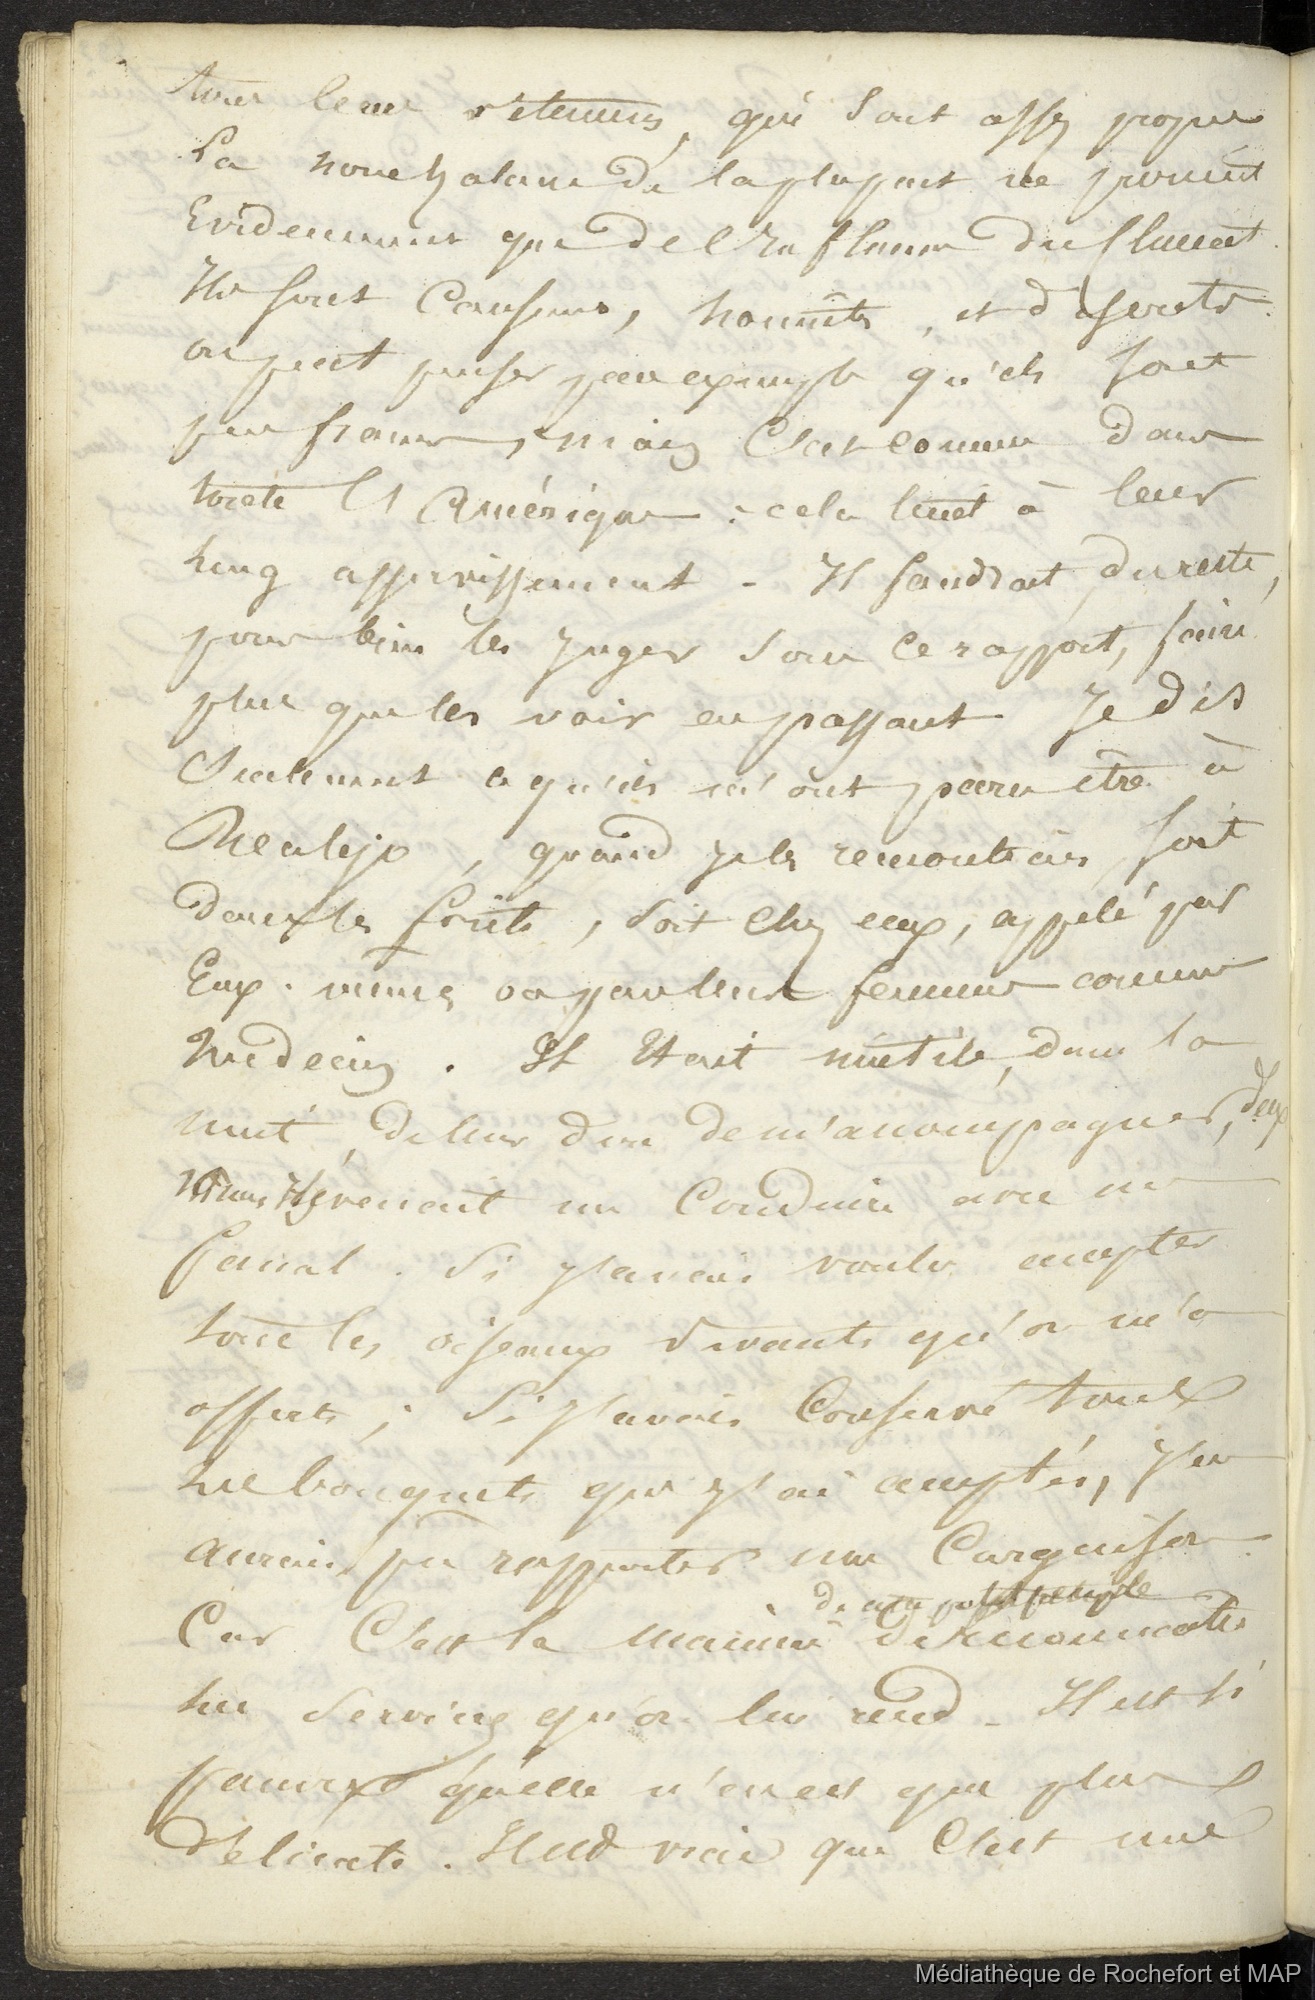 tous leurs vêtements, qui sont assez propres
La nonchalance de la plupart ne provient
Evidemment que de l'influence du climat.
Ils sont Causeurs, honnêtes, et discrets.
on peut penser par exemple qu'ils sont
peu francs, mais C'est commun dans
toute l'Amérique : cela tient à leur
long asservissement - Il faudrait, du reste,
pour bien les juger sous ce rapport, faire
plus que les voir en passant Je dis
Seulement ce qu'ils m'ont paru être à
Realejo, quand je les rencontrais, soit
dans les forêts, soit chez eux, appelé par
Eux-mêmes ou par leurs femmes comme
Médecin. Il était inutile, dans la
nuit, de leur dire de m'accompagner, d'eux
mêmes ils venaient me Conduire avec un
fanal. Si j'avais voulu accepter
tous les oiseaux vivants qu'on m'a
offerts ; Si j'avais Conservé tous
les bouquets que j'ai acceptés, j'en
aurais pu rapporter une Cargaison
de ce petit peuple
Car C'est la manière de reconnaître
les services qu'on lui rend - Il est si
pauvre qu'elle n'en est que plus
délicate. Il est vrai que C'est une
Médiathèque de Rochefort et MAP